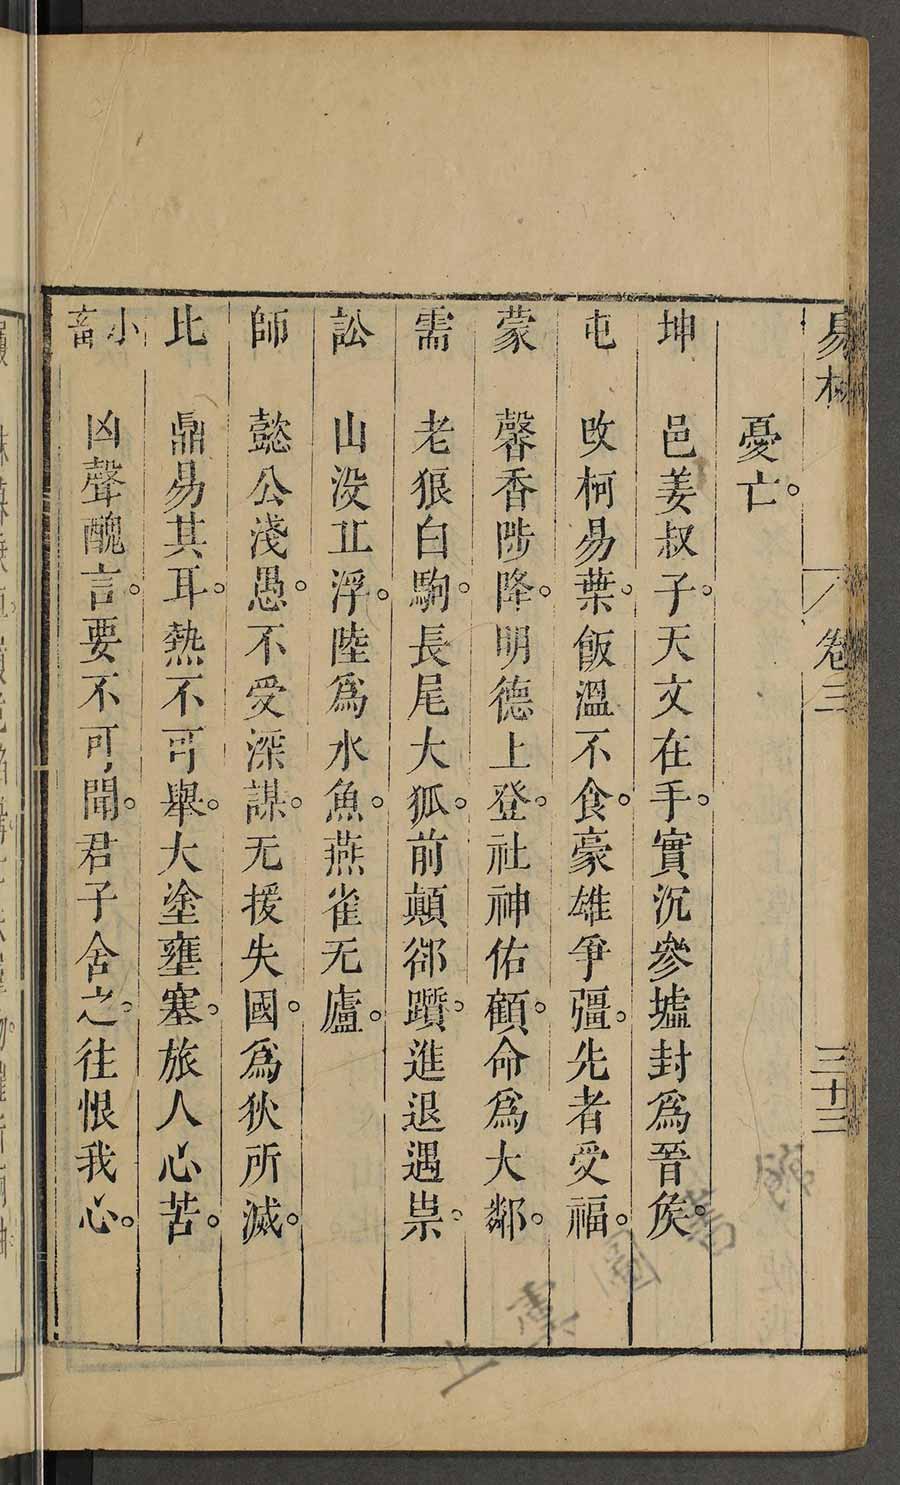 易林 卷三 三十三
憂亡。
坤 邑姜叔子。天文在手。實沉參墟封爲晉矦。
屯 改柯易葉。飯溫不食。豪雄爭彊。先者受福。
蒙 馨香陟降。明德上登。社神佑顧。命爲大鄰。
需 老狼白駒。長尾大狐。前顛郤躓。進退遇祟。
訟 山没丘浮。陸爲水魚。燕雀无廬。
師 懿公淺愚。不受深謀。无援失國。爲狄所滅。
比 鼎易其耳。熱不可舉。大塗壅塞。旅人心苦。
小畜 凶聲醜言。要不可聞。君子舍之。往恨我心。
上 圖書館